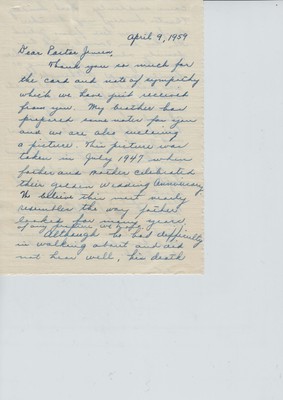 April 9, 1959
Dear Pastor Jensen,
Thank you so much for
the card and note of sympathy
which we have just received
from you. My brother has
prepared some notes for you
and we are also enclosing
a picture. This picture was
taken in July 1947 when
father and mother celebrated
their golden Wedding Anniversary
We believe this most nearly
resembles the way father
looked for many years
of any picture we have.
Although he had difficulty
in walking about and did
not hear well, his death